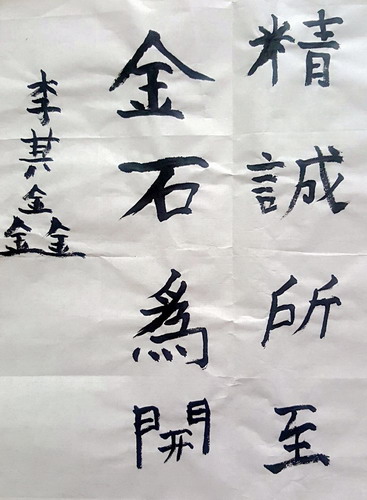 精誠所至
金石為開
李其鑫